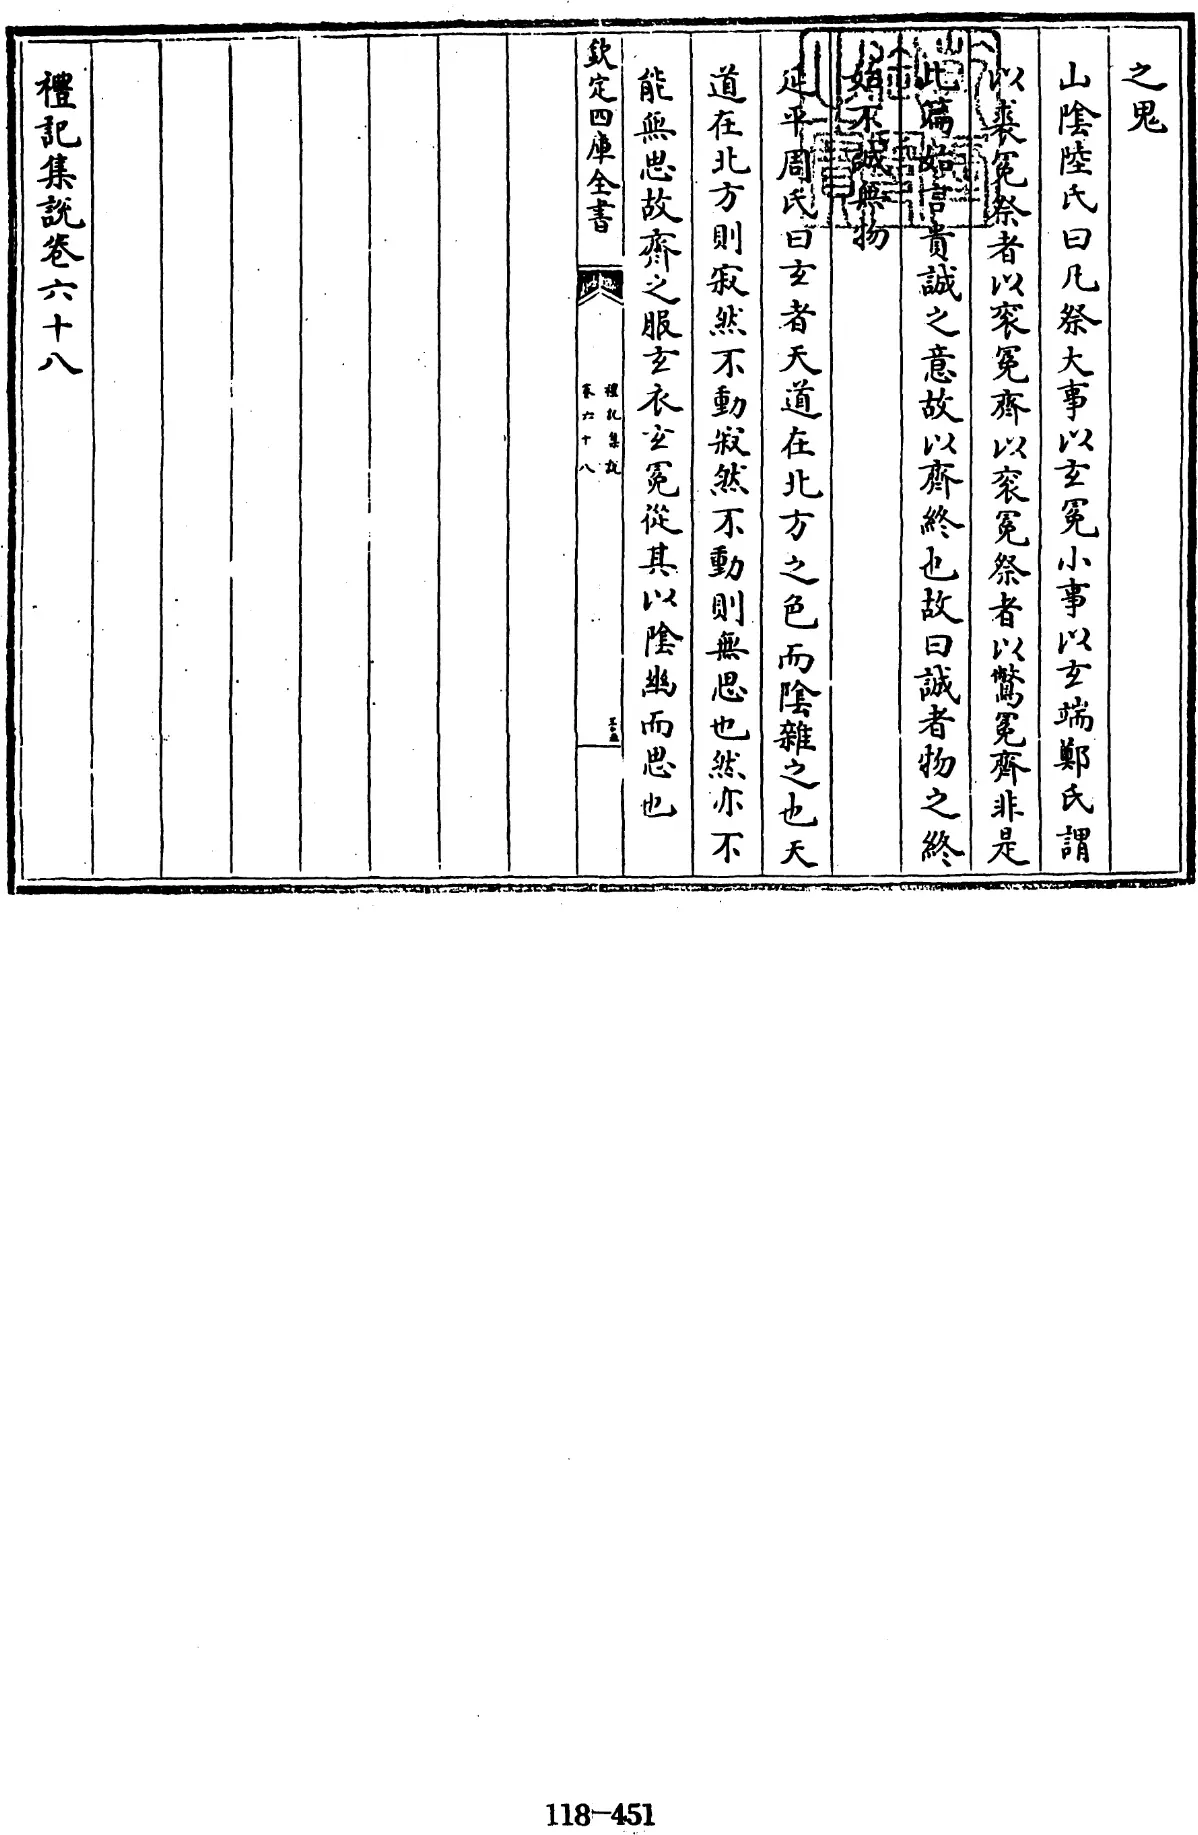 之鬼
山陰陸氏曰凡祭大事以玄冕小事以玄端鄭氏謂
以裘冕祭者以衮冕齊以衮冕祭者以鷩冕齊非是
此篇始言貴誠之意故以齊終也故曰誠者物之終
始不誠無物
延平周氏曰玄者天道在北方之色而陰雜之也天
道在北方則寂然不動寂然不動則無思也然亦不
能無思故齊之服玄衣玄冕從其以陰幽而思也
欽定四庫全書
禮記集說
卷六十八
禮記集說卷六十八
118-451